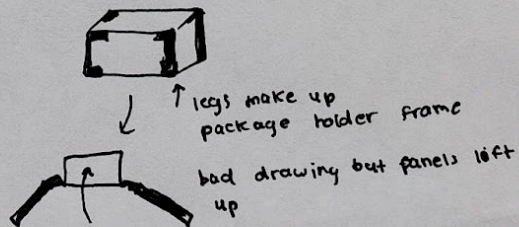 legs make up
package holder frame
bad drawing but panels lift
up